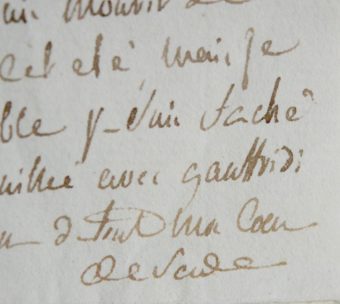 mourir de
cet eté, mais je
ble y suis taché
avec gauffridi
de tout mon Coeur
de Sade